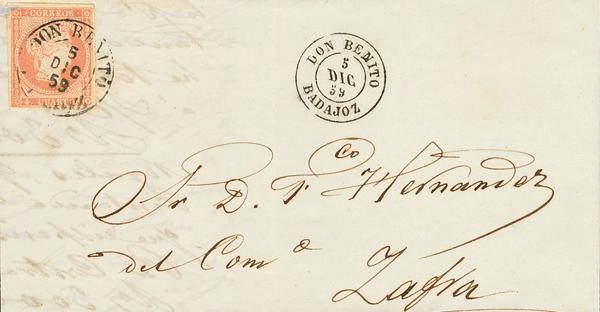 CORREOS
DON BENITO
5
DIC
59
CUARTOS
DON BENITO
5
DIC
59
BADAJOZ
Sr. D. Fco Hernandez
del Com.o
Zafra